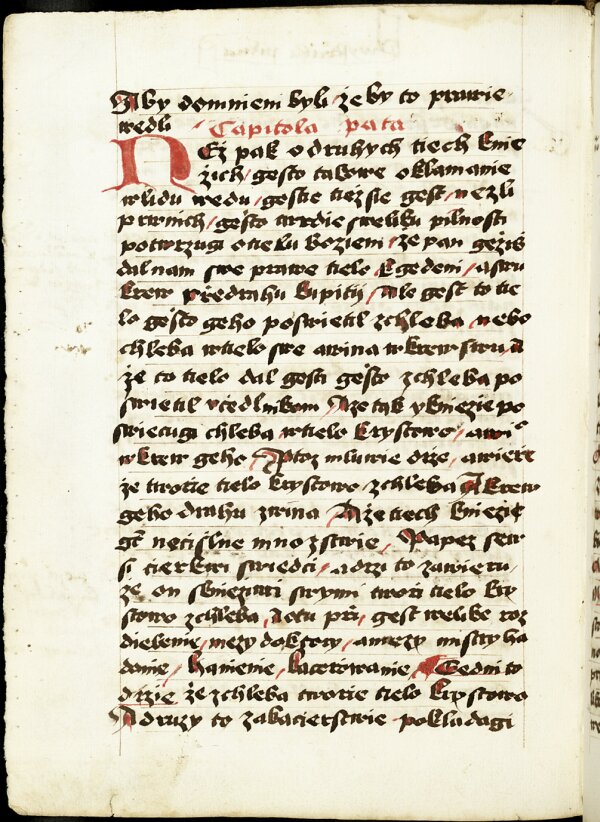 Aby domnieni byli / że by to prawie
wedli / Capitola pata
NEż pak o druhych tiech knie
żich / gesto takowe oklamanie
w lidu wedu / gestie tiežsie gest / nezli
prwnich / gesto twrdie s weliku pilnosti
potwrzugi o tielu bożiem / że pan geżiß
dal nam swe prawe tielo k gedeni / a swu
krew předrahu k pitij / Ale gest to tie
lo gesto geho poswietil z chleba / nebo
chleba w tielo swe a wina w krew swu / A
że to tielo dal gesti gesto z chleba po
swietil vcedlnikom / A że tak y kniezie po
swiecugi chleba / w tielo krystowo / a wi
w krew geho / A ptoz mluwie drze / a wierze
że tworie tielo krystowo / z chleba / A krew
geho drahu z wina / A że tiech knieżie
gt necislne mnozstwie / Papez sew
si cierkwi swiedci / a drzi to za wieru /
że on s kniezimi swymi tworzi tielo kry
stowo z chleba / A otu při / gest welike roz
dielenie / mezy doktory / a mezy mistry ha
danie / hanienie / kacerowanie / Gedni to
drzie że z chleba tworie tielo krystowo
A druzy to za kacierstwie pokladagi